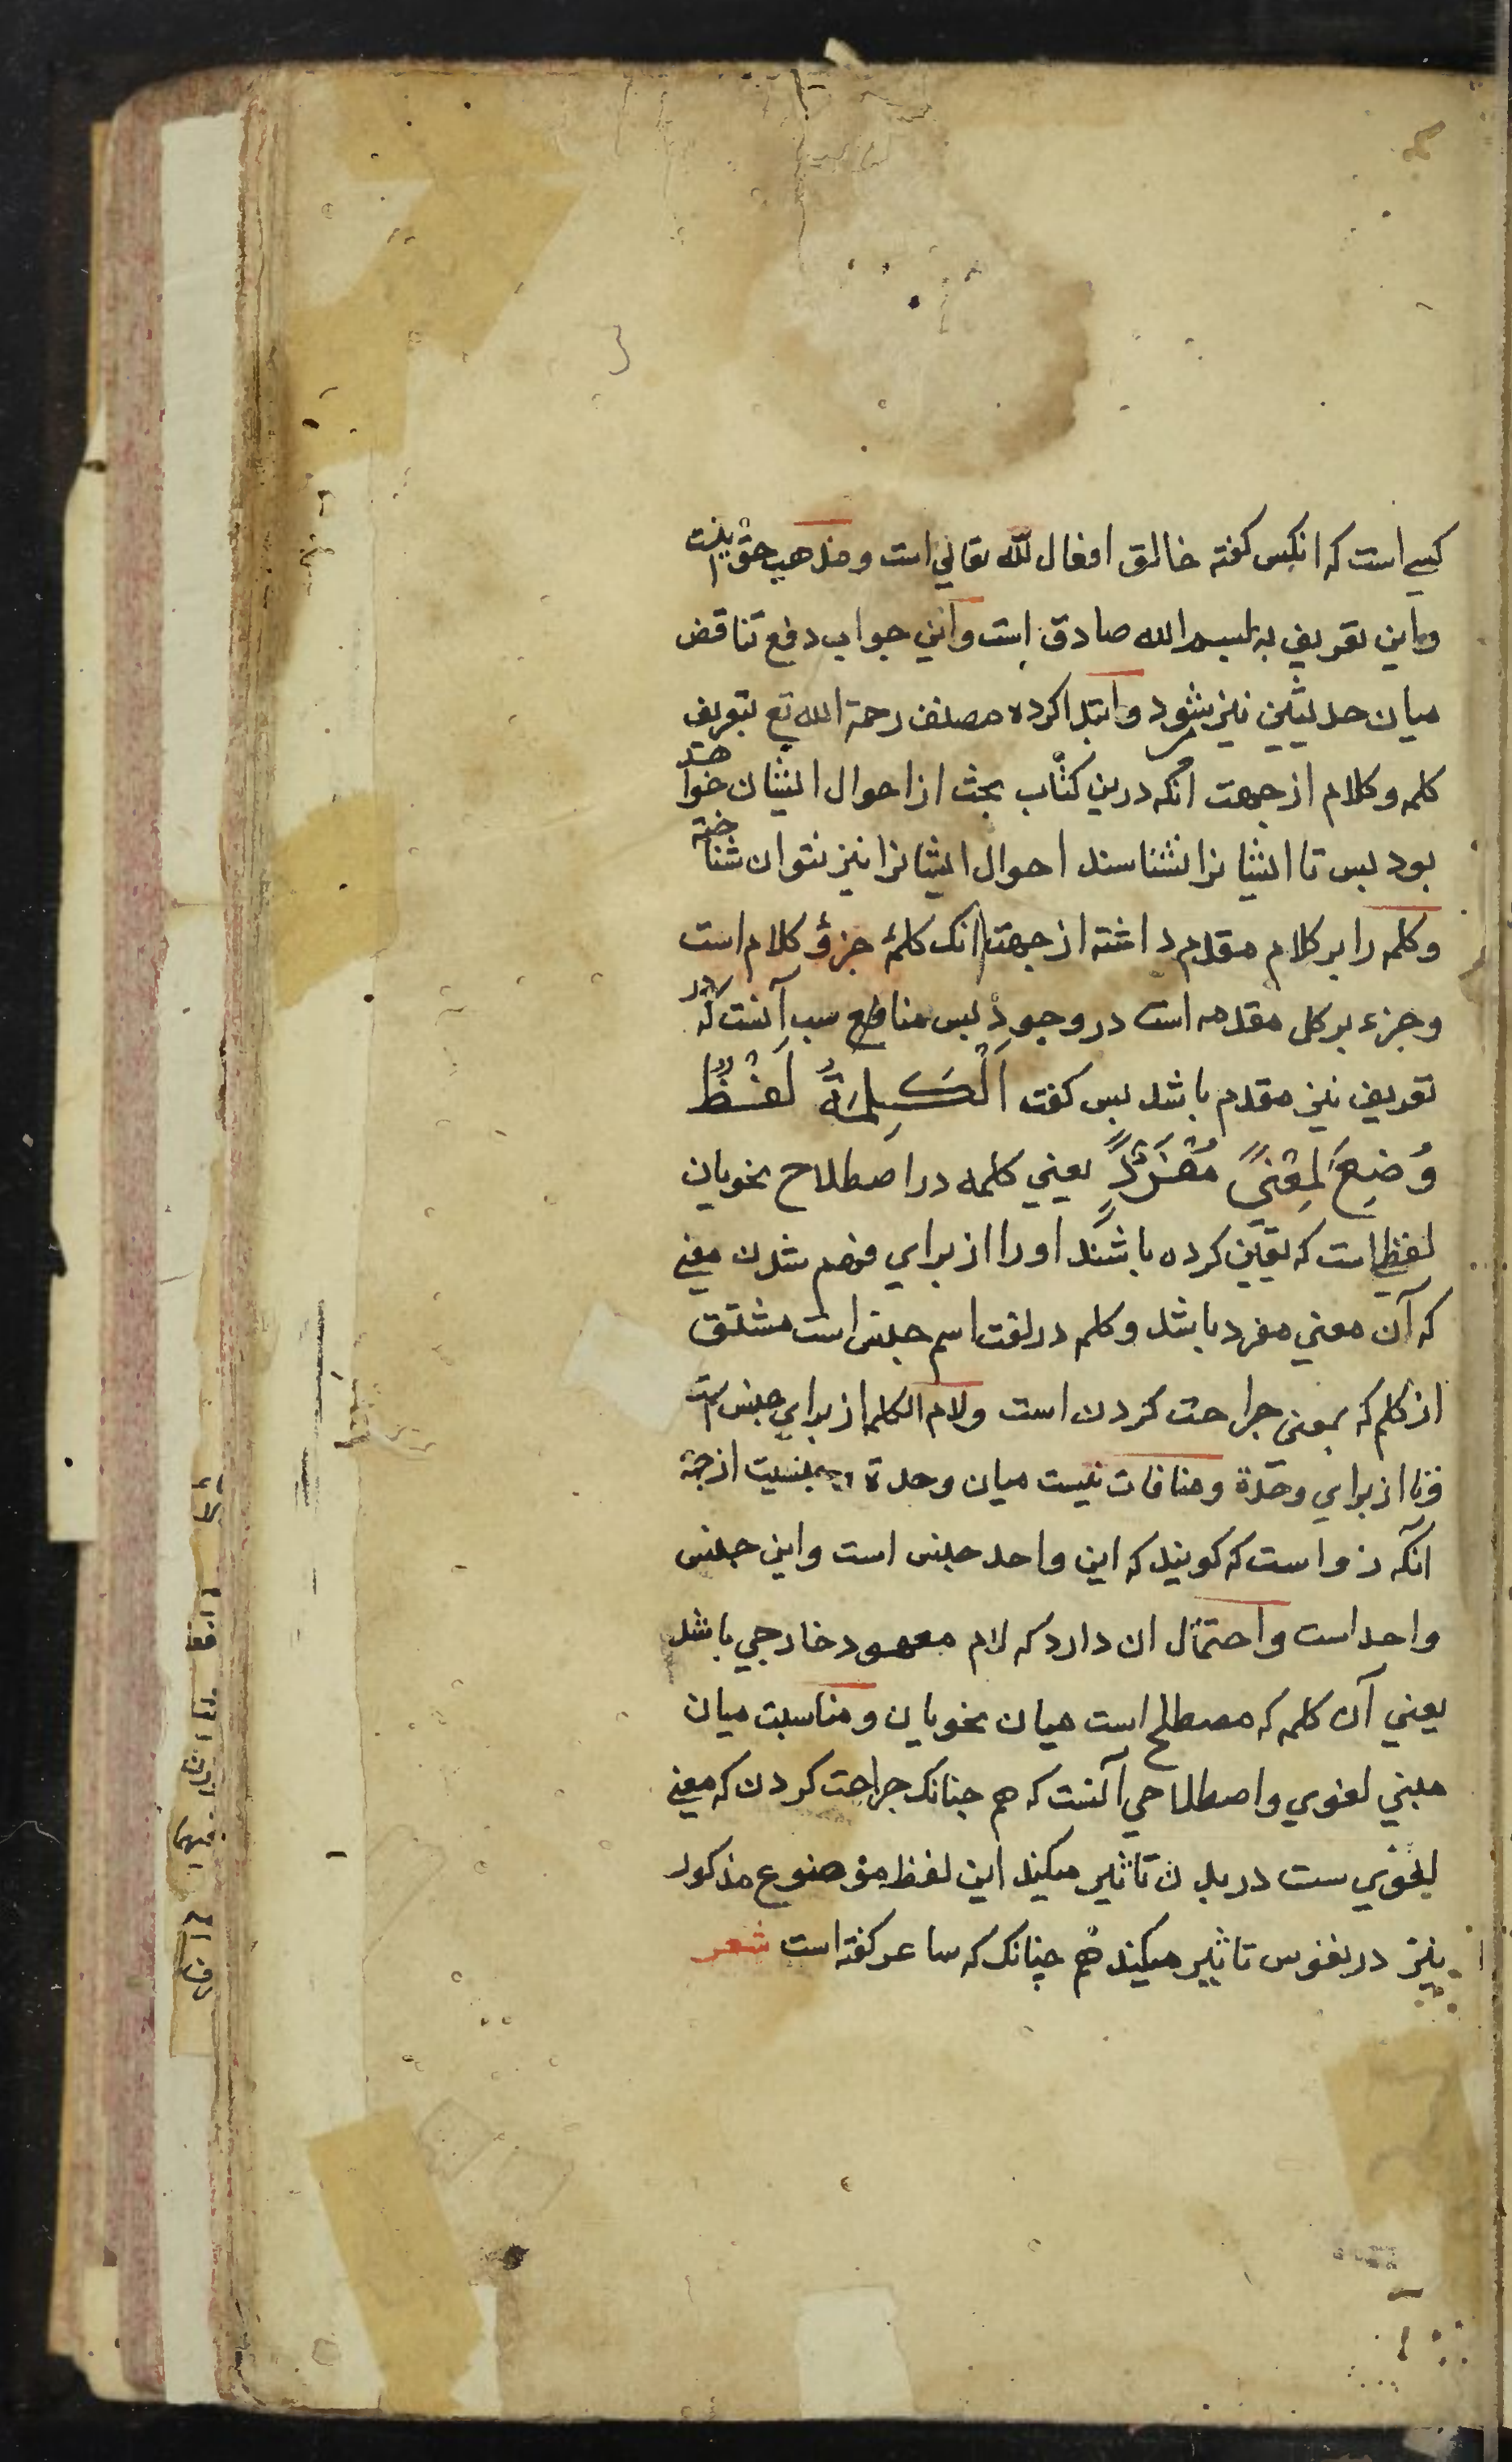 کسی است که انکس کفته خالق افعال الله تعالی است و مذهب حق اینست
و این تعریف به بسم الله صادق است و این جواب دفع تناقض
میان حدیثین نیز شود و ابتدا کرده مصنف رحمة الله تع بتعریف
کلمه و کلام از جهت انکه درین کتاب بحث از احوال ایشان خواهد
بود بس تا ایشانرا نشناسند احوال ایشانرا نیز نتوان شناخته
و کلمه را بر کلام مقدم داشته از جهت انک کلمۀ جزؤ کلام است
و جزء بر کل مقدمه است در وجودْ بس منافع سب آنست که در
تعریف نیز مقدم باشد بس کفت اَلْکَلِمَةُ لَفْظٌ
وُضِعَ لِمَعْنیً مُفْرَدٍ یعنی کلمه در اصطلاح نحویان
لفظی است که تعیین کرده باشند او را از برای فهم شدن معنی
که آن معنی مفرد باشد و کلم در لغت اسم جنس است مشتق
از کلم که بمعنی جراحت کردن است و لام الکلمه از برای جنس است
و تا از برای وحدة و منافات نیست میان وحدة و جنسیت از جهة
انکه رواست که کویند که این واحد جنس است و این جنس
واحد است و احتمال ان دارد که لام معهود خارجی باشد
یعنی آن کلمه که مصطلح است میان نحویان و مناسبت میان
معنی لغوی و اصطلاحی آنست که هم جنانک جراحت کردن که معنی
لغوی ست در بدن تاثیر میکند این لفظ موضوع مذکور
نیز در نفوس تاثیر میکند هم چنانک که ساعر کفته است شعر